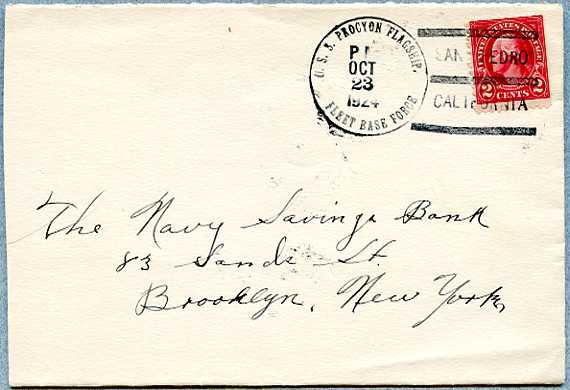 U. S. S. PROCYON FLAGSHIP.
OCT
23
1924
FLEET BASE FORCE
SAN PEDRO
CALIFORNIA
UNITED STATES POSTAGE
2 CENTS 2
The Navy Savings Bank
83 Sands St
Brooklyn, New York,